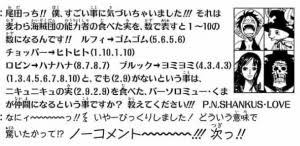 尾田っち!! 僕、すごい事に気づいちゃいました!!! それは
麦わら海賊団の能力者の食べた実を、数で表すと1~10の
数になるんです!! ルフィ➡ゴムゴム(5.6.5.6)
チョッパー➡ヒトヒト(1.10.1.10)
ロビン➡ハナハナ(8.7.8.7) ブルック➡ヨミヨミ(4.3.4.3)
(1.3.4.5.6.7.8.10)と、でも(2.9)がないという事は、
ニキュニキュの実(2.9.2.9)を食べた、バーソロミュー・くま
が仲間になるという事ですか? 教えてください!!! P.N.SHANKUS・LOVE
:なにィ〜〜〜っ!! いやーびっくりしました! どういう意味で
驚いたかって!? ノーコメント〜〜〜〜!!! 次っ!!